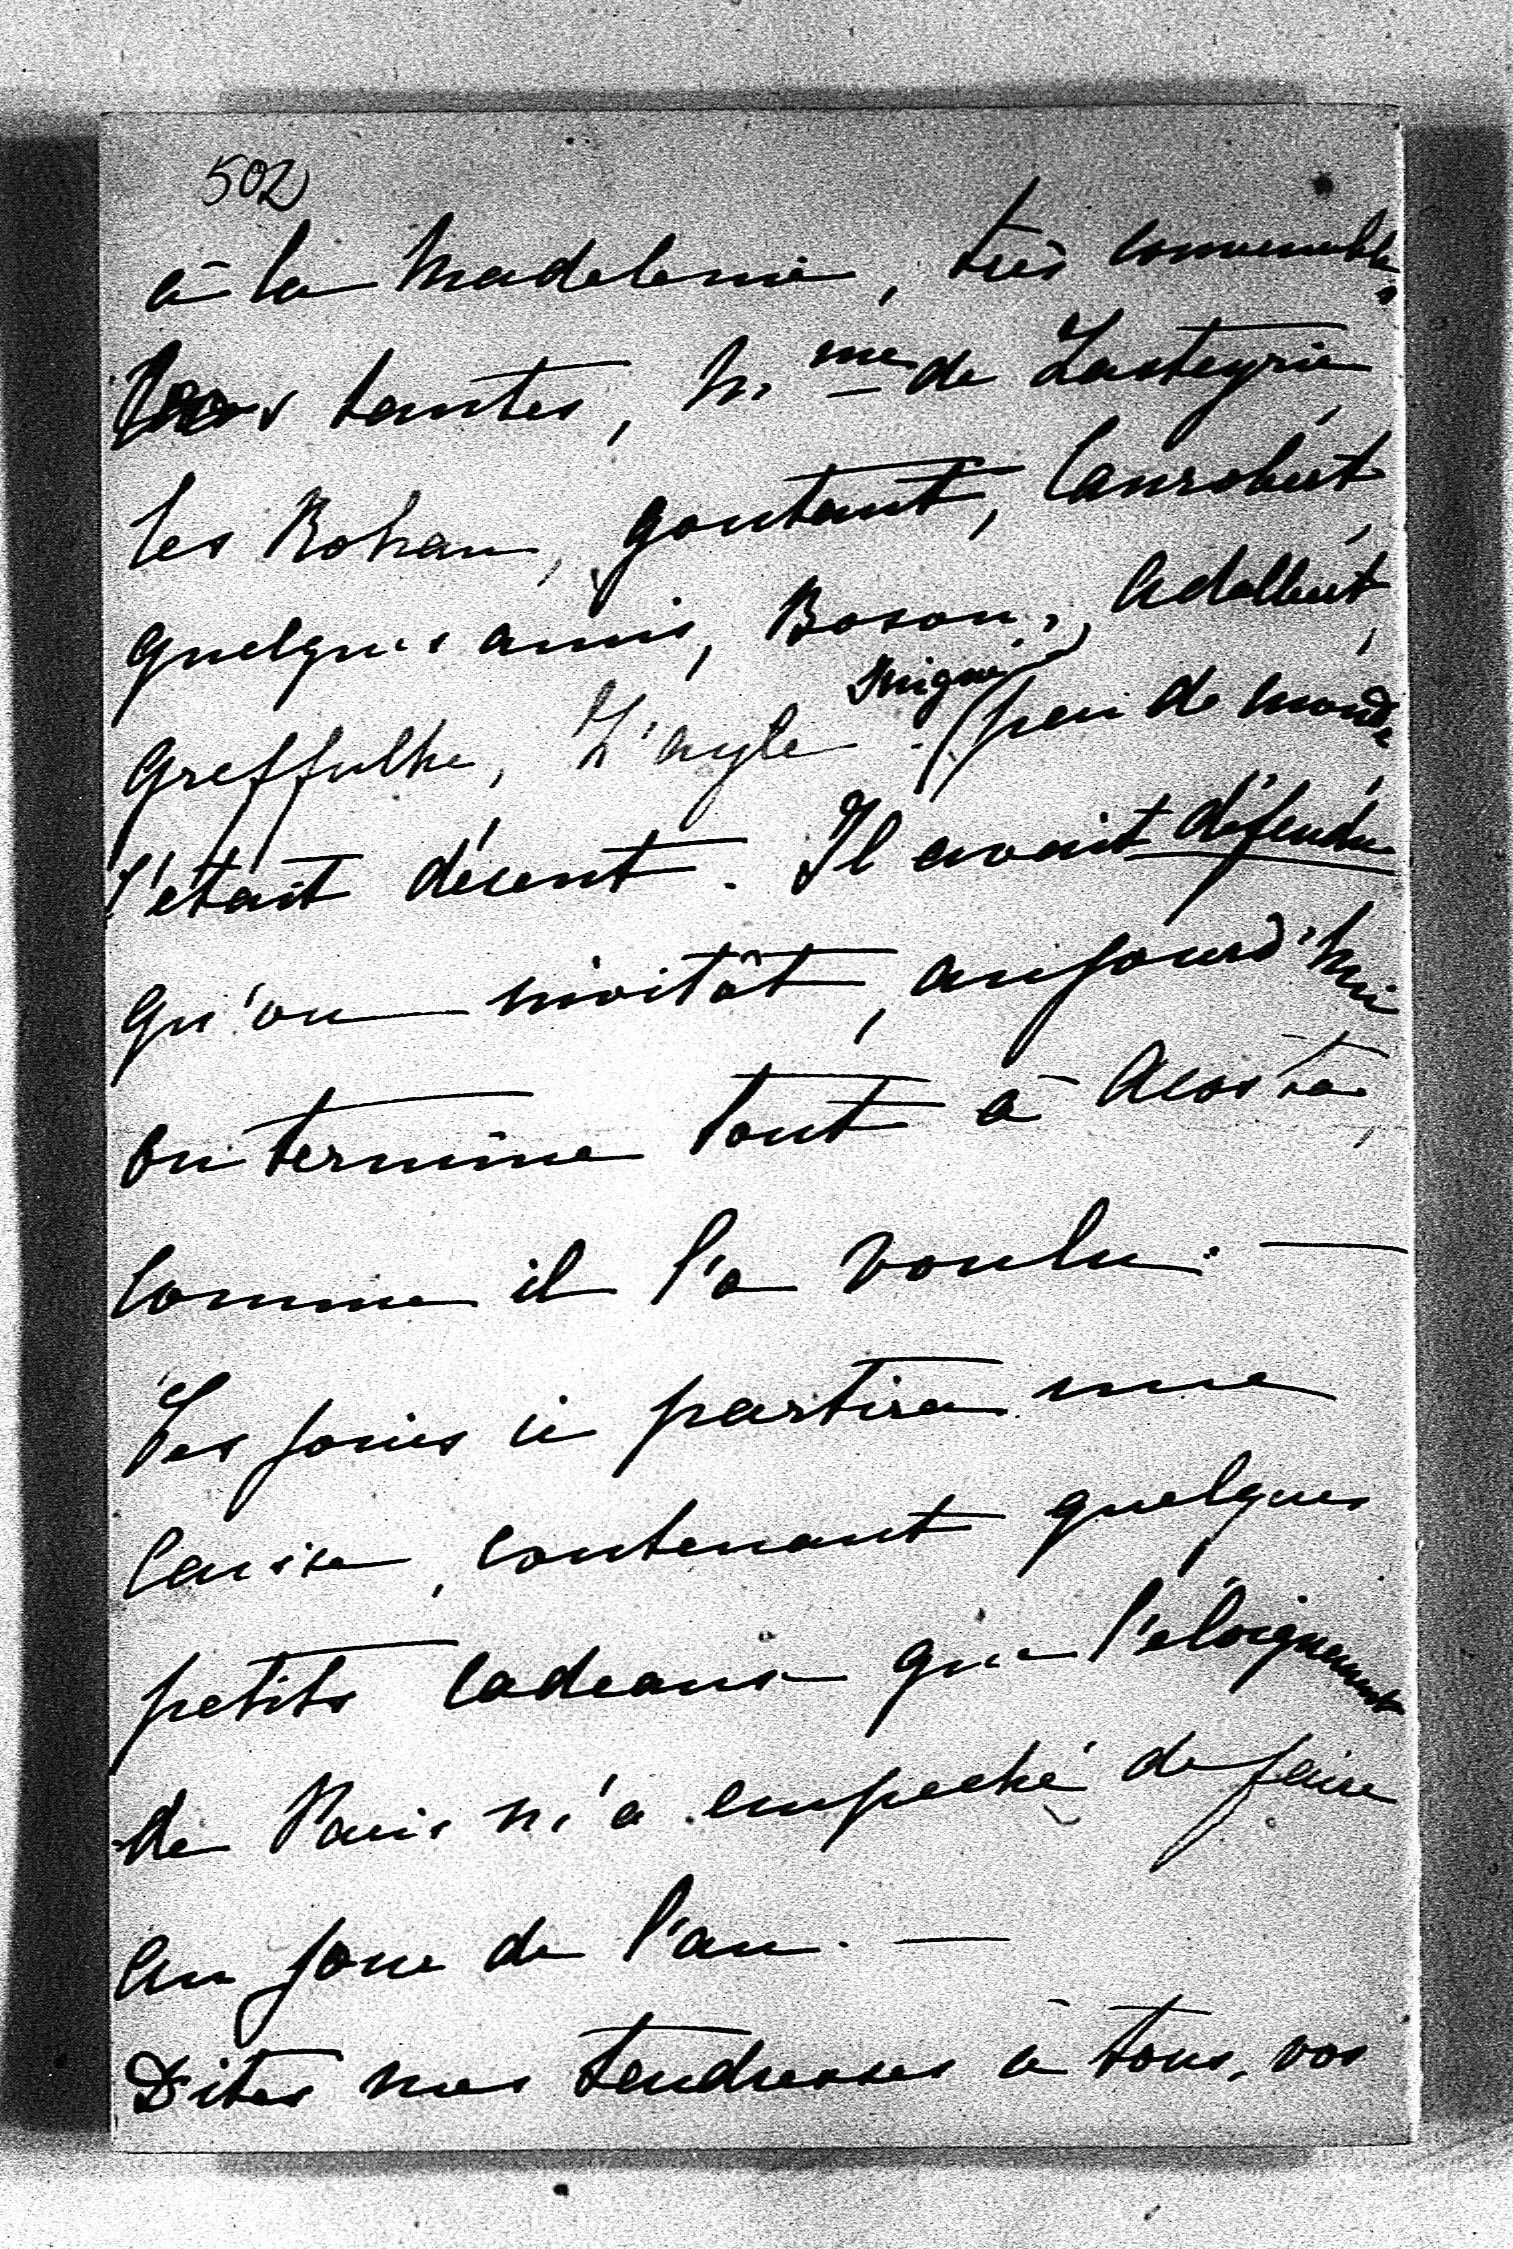 502
à la Madeleine, très convenable.
Vos tantes, M.me de Lasteyrie,
les Rohan, Gontaut, Canrobert,
quelques amis, Boson, Adalbert,
Greffulhe, L'aigle. (peu de monde,
c'était décent. Il avait défendu
qu'on invitât, aujourd'hui
on termine tout à Acosta,
comme il l'a voulu. —
Ces jours ci partira une
caisse, contenant quelques
petits cadeaux que l'éloignement
de Paris m'a empeché de faire
au jour de l'an. —
Dites mes tendresses à tous, vos